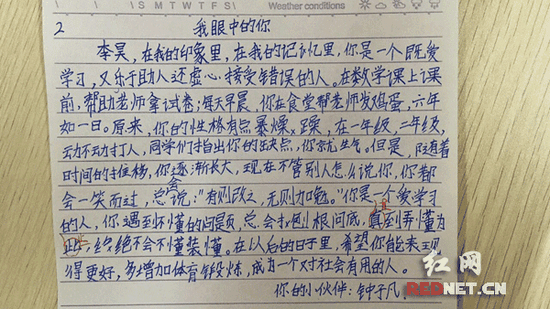 SMTWTFS
Weather conditions
2
我眼中的你
李昊，在我的印象里，在我的记忆里，你是一个既爱
学习，又乐于助人还虚心接受错误的人。在数学课上课
前，帮助老师拿试卷，每天早晨，你在食堂帮老师发鸡蛋，六年
如一日。原来，你的性格有点暴燥躁，在一年级，二年级，
动不动打人，同学们指出你的缺点，你就生气。但是，随着
时间的推移，你逐渐长大，现在不管别人怎么说你，你都
会一笑而过，总会说："有则改之，无则加勉。"你是一个爱学习
的人，你遇到不懂的问题，总会打倒根问底，直到弄懂为
止，绝不会不懂装懂。在以后的日子里，希望你能表现
得更好，多增加体育锻炼，成为一个对社会有用的人。
你的小伙伴：钟子凡
红网
REDNET.CN